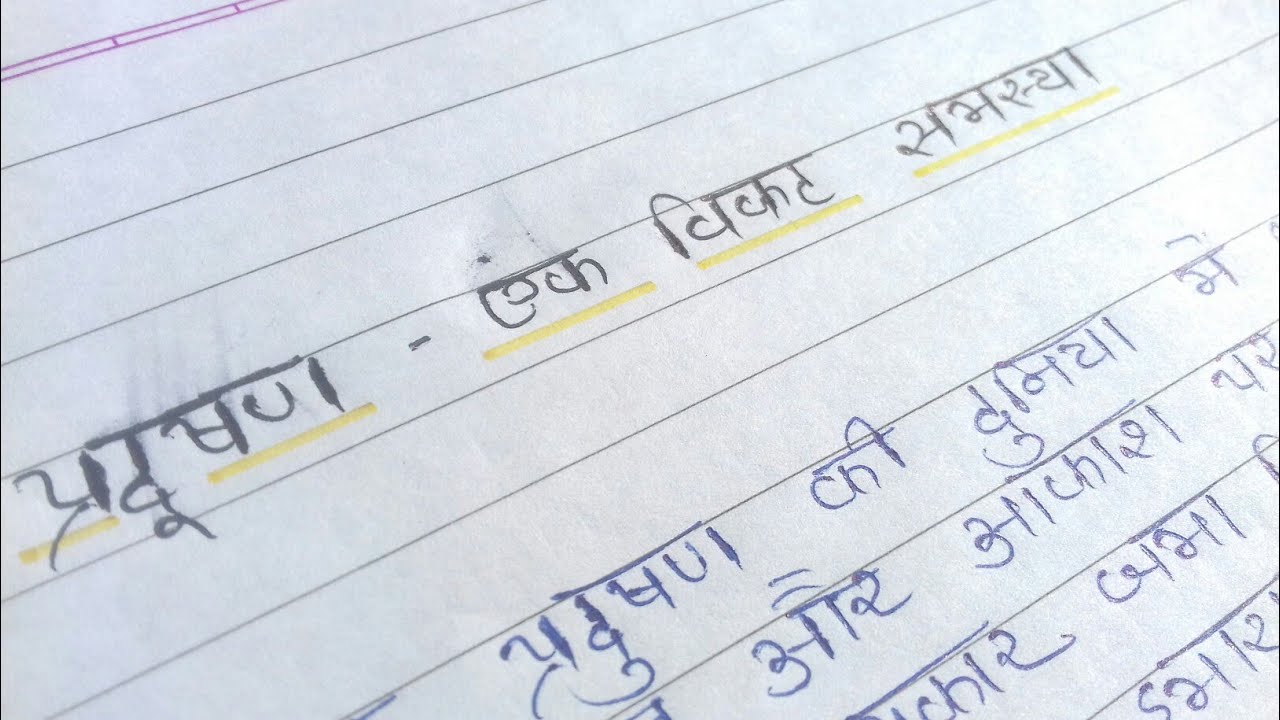 प्रदूषण - एक विकट समस्या
प्रदुषण की दुनिया में
और आकाश पर
जमा